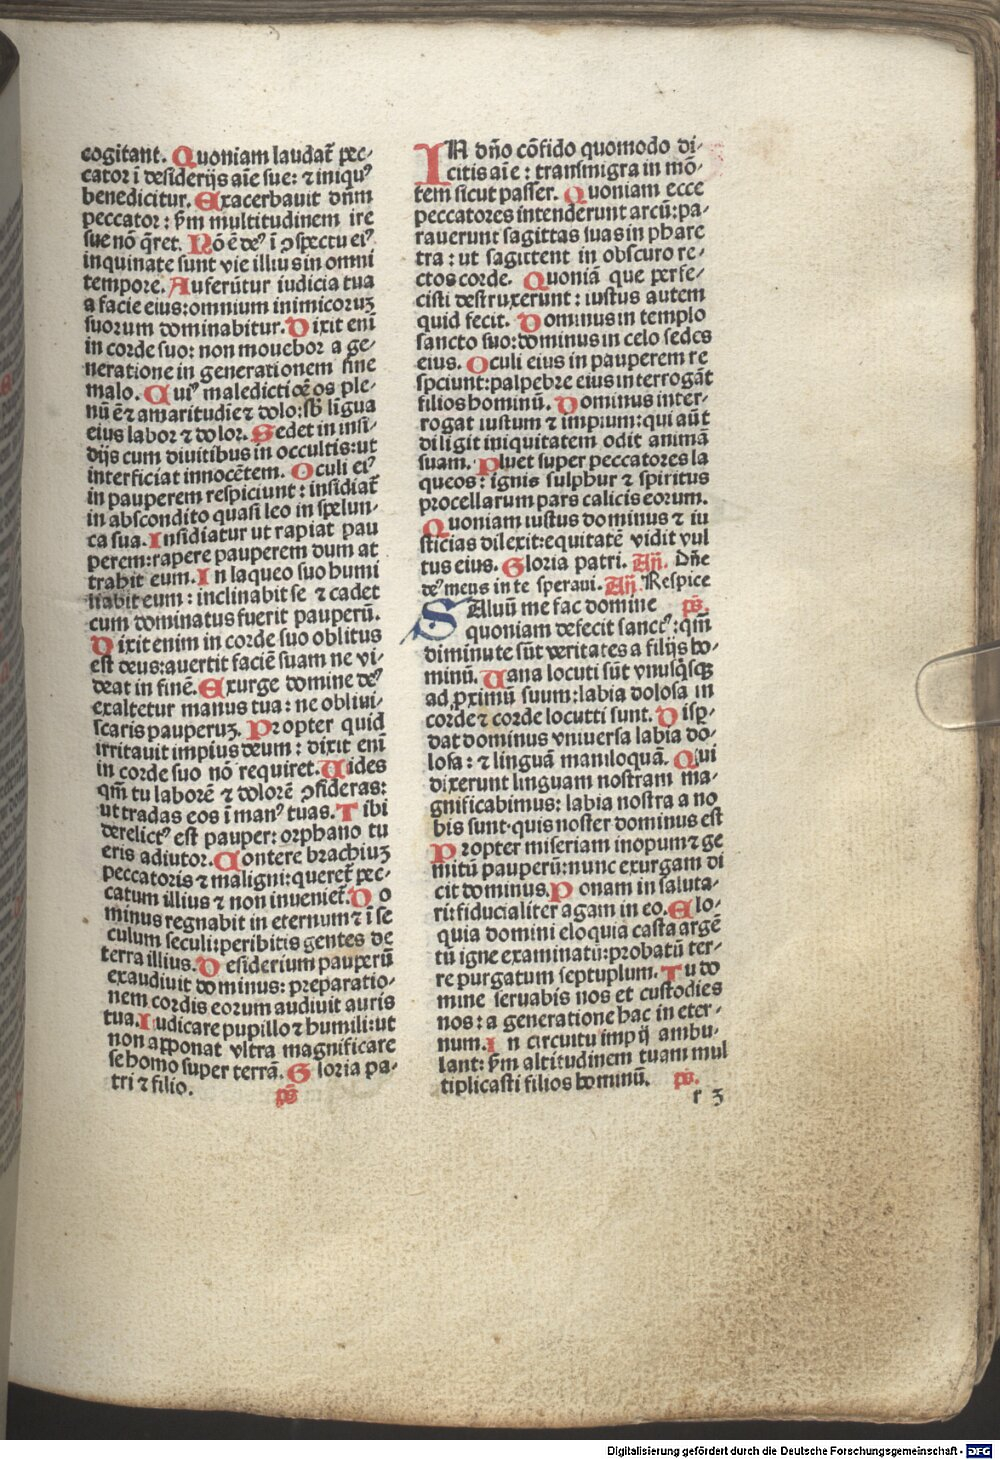 cogitant. Quoniam laudat̄ pec-
cator ī desiderijs aīe sue: ⁊ iniquꝰ
benedicitur. Exacerbauit dn̄m
peccator: ẜm multitudinem ire
sue nō q̄ret. Nō ē deꝰ ī ꝯspectu eiꝰ
inquinate sunt vie illius in omni
tempore. Auferūtur iudicia tua
a facie eius: omnium inimicoruꝫ
suorum dominabitur. Dixit enī
in corde suo: non mouebor a ge-
neratione in generationem sine
malo. Cuiꝰ maledictiōe os ple-
nū ē ⁊ amaritudīe ⁊ dolo: sb̄ līgua
eius labor ⁊ dolor. Sedet in insi-
dijs cum diuitibus in occultis: ut
interficiat innocētem. Oculi eiꝰ
in pauperem respiciunt: insidiat̄
in abscondito quasi leo in spelun-
ca sua. Insidiatur ut rapiat pau
perem: rapere pauperem dum at
trahit eum. In laqueo suo humi
liabit eum: inclinabit se ⁊ cadet
cum dominatus fuerit pauperū.
Dixit enim in corde suo oblitus
est deus: auertit faciē suam ne vi-
deat in finē. Exurge domine deꝰ
exaltetur manus tua: ne obliui-
scaris pauperuꝫ. Propter quid
irritauit impius deum: dixit enī
in corde suo nō requiret. Uides
qm̄ tu laborē ⁊ dolorē ꝯsideras:
ut tradas eos ī manꝰ tuas. Tibi
derelictꝰ est pauper: orphano tu
eris adiutor. Contere brachiuꝫ
peccatoris ⁊ maligni: queret̄ pec-
catum illius ⁊ non inueniet̄. Do
minus regnabit in eternum ⁊ ī se
culum seculi: peribitis gentes de
terra illius. Desiderium pauperū
exaudiuit dominus: preparatio-
nem cordis eorum audiuit auris
tua. Iudicare pupillo ⁊ humili: ut
non apponat vltra magnificare
se homo super terrā. Gloria pa-
tri ⁊ filio. ps̄
IN dn̄o cōfido quomodo di-
citis aīe: transmigra in mō-
tem sicut passer. Quoniam ecce
peccatores intenderunt arcū: pa-
rauerunt sagittas suas in phare
tra: ut sagittent in obscuro re-
ctos corde. Quoniā que perfe-
cisti destruxerunt: iustus autem
quid fecit. Dominus in templo
sancto suo: dominus in celo sedes
eius. Oculi eius in pauperem re
spciunt: palpebre eius interrogāt
filios hominū. Dominus inter-
rogat iustum ⁊ impium: qui aūt
diligit iniquitatem odit animā
suam. Pluet super peccatores la
queos: ignis sulphur ⁊ spiritus
procellarum pars calicis eorum.
Quoniam iustus dominus ⁊ iu
sticias dilexit: equitatē vidit vul
tus eius. Gloria patri. Añ. Dn̄e
deꝰ meus in te speraui. Añ. Respice
SAluū me fac domine ps̄.
quoniam defecit sanctꝰ: qm̄
diminute sūt veritates a filijs ho-
minū. Uana locuti sūt vnusq̇sqꝫ
ad ꝓximū suum: labia dolosa in
corde ⁊ corde locutti sunt. Disꝑ-
dat dominus vniuersa labia do-
losa: ⁊ linguā maniloquā. Qui
dixerunt linguam nostram ma-
gnificabimus: labia nostra a no
bis sunt· quis noster dominus est
Propter miseriam inopum ⁊ ge
mitū pauperū: nunc exurgam di
cit dominus. Ponam in saluta-
ri: fiducialiter agam in eo. Elo-
quia domini eloquia casta argē
tū igne examinatū: probatū ter-
re purgatum septuplum. Tu do
mine seruabis nos et custodies
nos: a generatione hac in eter-
num. In circuitu impij ambu-
lant: ẜm altitudinem tuam mul
tiplicasti filios hominū. ps̄.
r 3
Digitalisierung gefördert durch die Deutsche Forschungsgemeinschaft - DFG